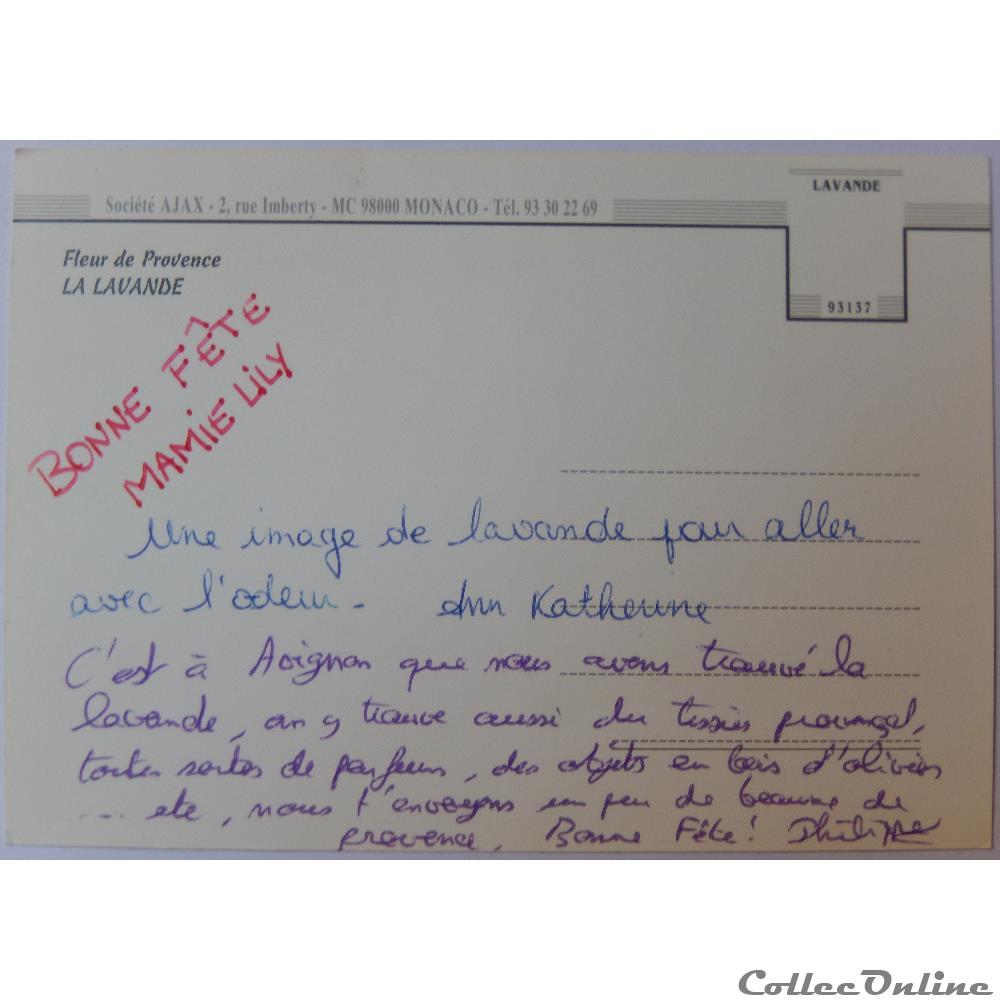 LAVANDE
Société AJAX - 2, rue Imberty - MC 98000 MONACO - Tél. 93 30 22 69
Fleur de Provence
LA LAVANDE
93137
BONNE FÊTE
MAMIE LILY
Une image de lavande pour aller
avec l'odeur. Ann Katherine
C'est à Avignon que nous avons trouvé la
lavande, on y trouve aussi du tissus provençal,
toutes sortes de parfums, des objets en bois d'olivier
... etc, nous t'envoyons un peu de beaume de
provence, Bonne Fête! Philippe
CollecOnline